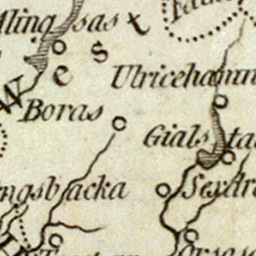 Aling sas
West
Ulriceham
Boras
Gials ta
ngsbacka
Sexdr